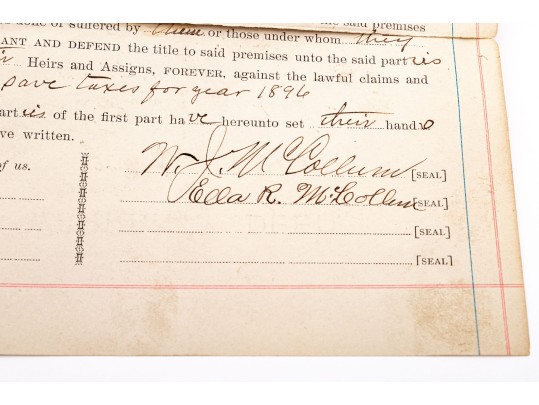 done or suffered by them or those under whom they
ANT AND DEFEND the title to said premises unto the said parties
Heirs and Assigns, FOREVER, against the lawful claims and
save taxes for year 1896
arties of the first part have hereunto set their hands
ve written.
of us.
W. J. McCollum [SEAL]
Ella R. McCollum [SEAL]
[SEAL]
[SEAL]